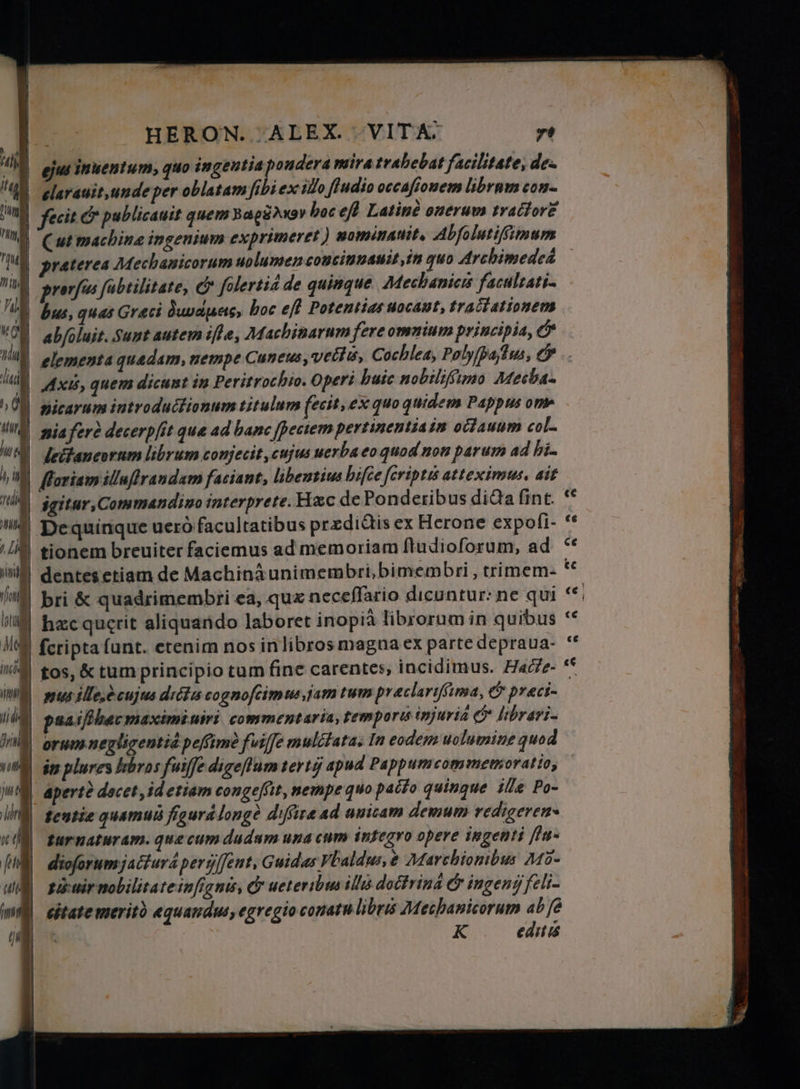 HERON. ALEX. VITA. 71
ejus inuentum, quo ingentia pondera mira trahebat facilitate, de-
clarauit, unde per oblatam sibi ex illo studio occasionem librum con-
fecit & publicauit quem Βαρȣλκον hoc est Latinè onerum tractore
( ut machinæ ingenium exprimeret ) nominauit. Absolutissimum
præterea Mechanicorum uolumen concinnauit, in quo Archimedeâ
prorsus subtilitate, & solertiâ de quinque Mechanicis facultati-
bus, quas Græci δυνάμεις, hoc est Potentias uocant, tractationem
absoluit. Sunt autem istæ, Machinarum fere omnium principia, &
elementa quædam, nempe Cuneus, vectis, Cochlea, Polyspastus, &
Axis, quem dicunt in Peritrochio. Operi huic nobilissimo Mecha-
nicarum introductionum titulum fecit, ex quo quidem Pappus om-
nia ferè decerpsit quæ ad hanc speciem pertinentia in octauum col-
lectaneorum librum conjecit, cujus uerba eo quod non parum ad hi-
storiam illustrandam faciant, libentius hisce scriptis atteximus, ait
igitur, Commandino interprete. Hæc de Ponderibus dicta sint. “
De quinque uerò facultatibus prædictis ex Herone exposi- “
tionem breuiter faciemus ad memoriam studiosorum, ad “
dentes etiam de Machinâ unimembri, bimembri, trimem- “
bri & quadrimembri ea, quæ necessario dicuntur: ne qui “
hæc quærit aliquando laboret inopiâ librorum in quibus “
scripta sunt. etenim nos in libros magna ex parte depraua- “
tos, & tum principio tum fine carentes, incidimus. Hacte- “
nus ille, è cujus dictis cognoscimus, jam tum præclarissima, & præci-
puaisthæc maximi uiri commentaria, temporis injuriâ & librari-
orum negligentiâ pessimè fuisse mulctata. In eodem uolumine quod
in plures libros fuisse digestum tertij apud Pappum commemoratio,
apertè docet, id etiam congessit, nempe quo pacto quinque illæ Po-
tentiæ quamuis figurâ longè diffiræ ad unicam demum redigeren-
tur naturam. quæ cum dudum una cum integro opere ingenti stu-
diosorum jacturâ perijssent, Guidus Vbaldus, è Marchionibus Mō-
tis uir nobilitate insignis, & ueteribus illis doctrinâ & ingenij feli-
citate meritò æquandus, egregio conatu libris Mechanicorum ab se
K editis